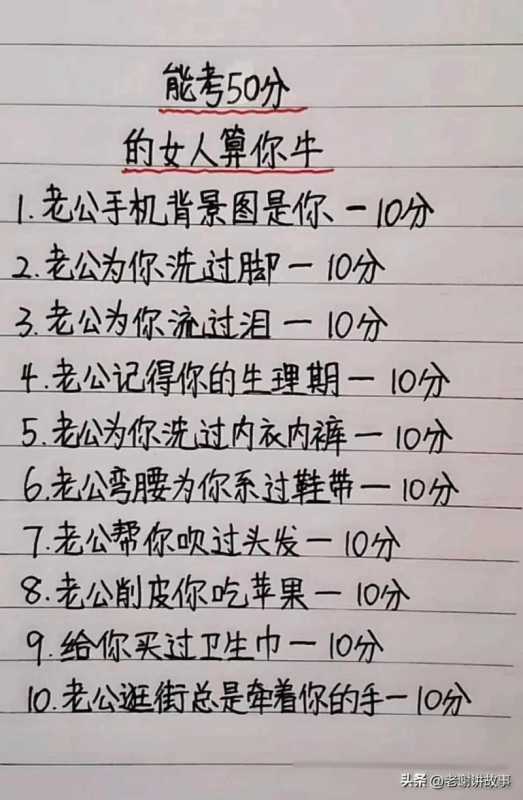 能考50分
的女人算你牛
1.老公手机背景图是你-10分
2.老公为你洗过脚-10分
3.老公为你流过泪-10分
4.老公记得你的生理期-10分
5.老公为你洗过内衣内裤-10分
6.老公弯腰为你系过鞋带-10分
7.老公帮你吹过头发-10分
8.老公削皮你吃苹果-10分
9.给你买过卫生巾-10分
10.老公逛街总是牵着你的手-10分
头条 @老谢讲故事